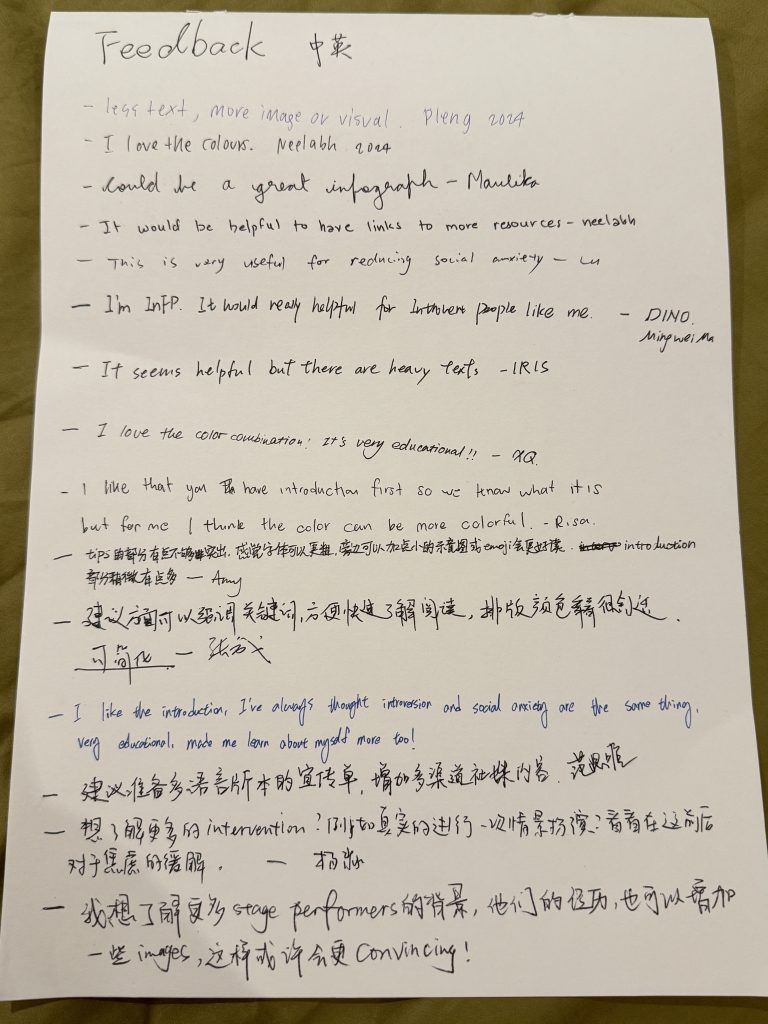 Feedback 中英
- less text, more image or visual. Pleng 2024
- I love the colours. Neelabh 2024
- Could be a great infograph - Maulika
- It would be helpful to have links to more resources - neelabh
- This is very useful for reducing social anxiety - Lu
- I'm InFP. It would really helpful for Introvert people like me. - DINO.
Mingwei Ma
- It seems helpful but there are heavy texts - IRIS
- I love the color combination! It's very educational!! - XQ.
- I like that you have introduction first so we know what it is
but for me I think the color can be more colorful. - Risa.
- tips的部分有点不够突出，感觉字体可以更粗，旁边可以加点小的示意图或emoji会更好读. introduction
部分稍微有点多 - Amy
- 建议方面可以强调关键词，方便快速了解阅读，排版颜色
可简化. - 张
- I like the introduction, I've always thought introversion and social anxiety are the same thing,
very educational, made me learn about myself more too!
- 建议准备多语言版本的宣传单，增加多渠道社媒内容.
- 想了解更多的intervention？例如真实的进行一次情景扮演？看看在这前后
对于焦虑的缓解. - 杨
- 我想了解更多stage performers的背景，他们的，也可以增加
一些images，这样或许会更convincing！